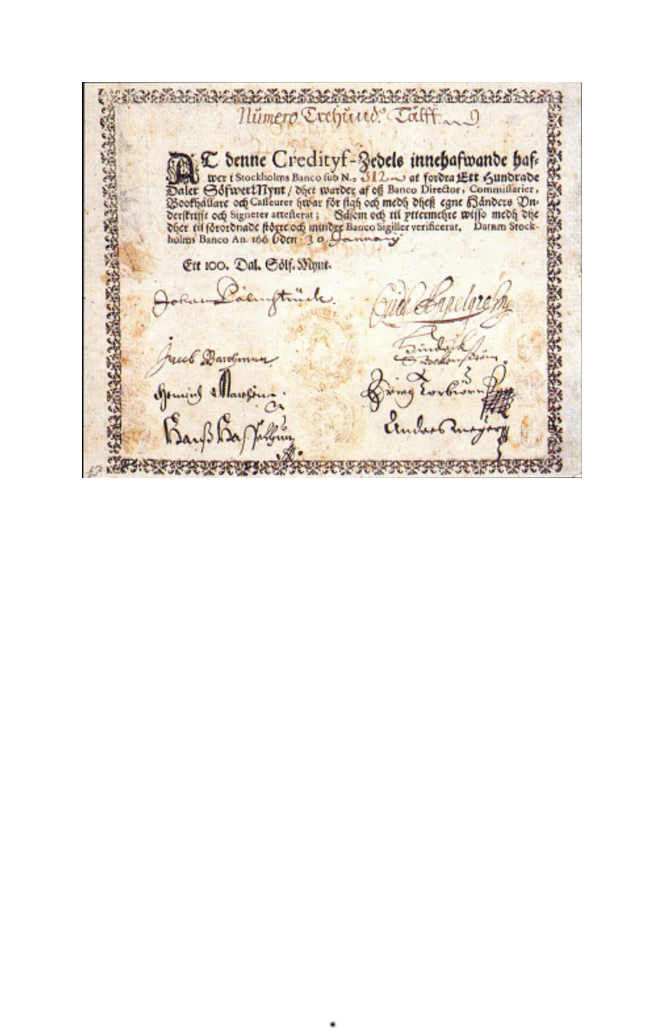 Numero Trehund. Tålff.
AT denne Credityf-Zedels innehafwande haf-
wer i Stockholms Banco sub N.o 312 at fordra Ett Hundrade
Daler SölfwerMynt / dhet warder af oß Banco Director, Commissarier,
Bookhållare och Casseurer hwar för sigh och medh dheß egne Händers Un-
derskrifft och Signeter attesterat; Såsom och til yttermehre wisso medh dhe
dher til förordnade större och mindre Banco Sigiller verificerat. Datum Stock-
holms Banco An. 1666 den 30 January
Ett 100. Dal. Sölf. Mynt.
Johan Palmstruch.
Jacob
Hinrich
Hanß
Anders Meijer